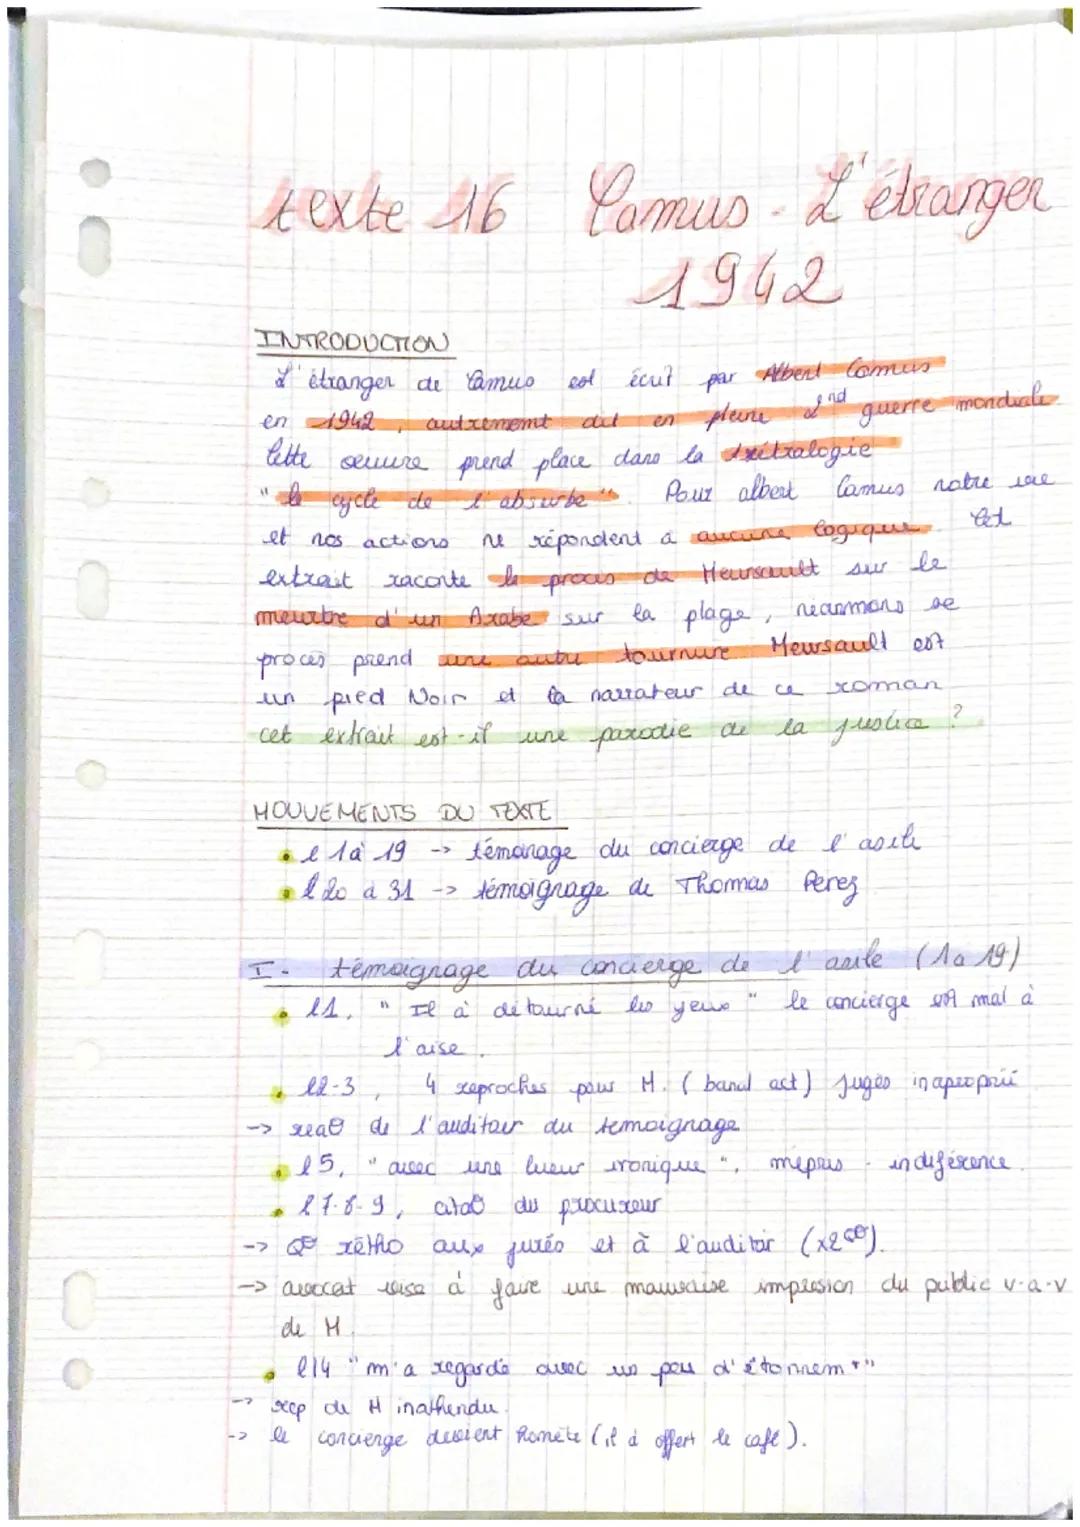 texte 16 Camus - L'étranger
1942
INTRODUCTION
L'étranger de Camus est écrit par Albert Camus
en 1942, autrement dit en pleine 2nd guerre mondiale
Cette oeuvre prend place dans la tétralogie
"le cycle de l'absurbe". Pour albert Camus notre vie
et nos actions ne répondent a aucune logique. Cet
extrait raconte le procès de Meursault sur le
meurtre d'un Arabe sur la plage, néanmons se
procès prend une autre tournure Meursault est
un pied Noir et la narrateur de ce roman
cet extrait est-il une parodie de la justice ?
MOUVEMENTS DU TEXTE
• l 1 à 19 -> témoinage du concierge de l'asile
• l 20 a 31 -> témoignage de Thomas Perez
I- témoignage du concierge de l'asile (1 a 19)
• l1, "Il à détourné les yeux" le concierge est mal à
l'aise.
• l2-3, 4 reproches pour M. (banal act) jugés inaproprié
-> rea° de l'auditoir du temoignage
• l5, "avec une lueur ironique", mépris - indiférence.
• l7-8-9, du procureur
-> Q° rétho aux jurés et à l'auditoir
-> avocat vise à faire une mauvaise impression du public v-a-v
de M.
• l14 "m'a regardé avec un peu d'étonnemt"
-> rep de M inathendu.
-> le concierge devient honnête (il à offert le café).